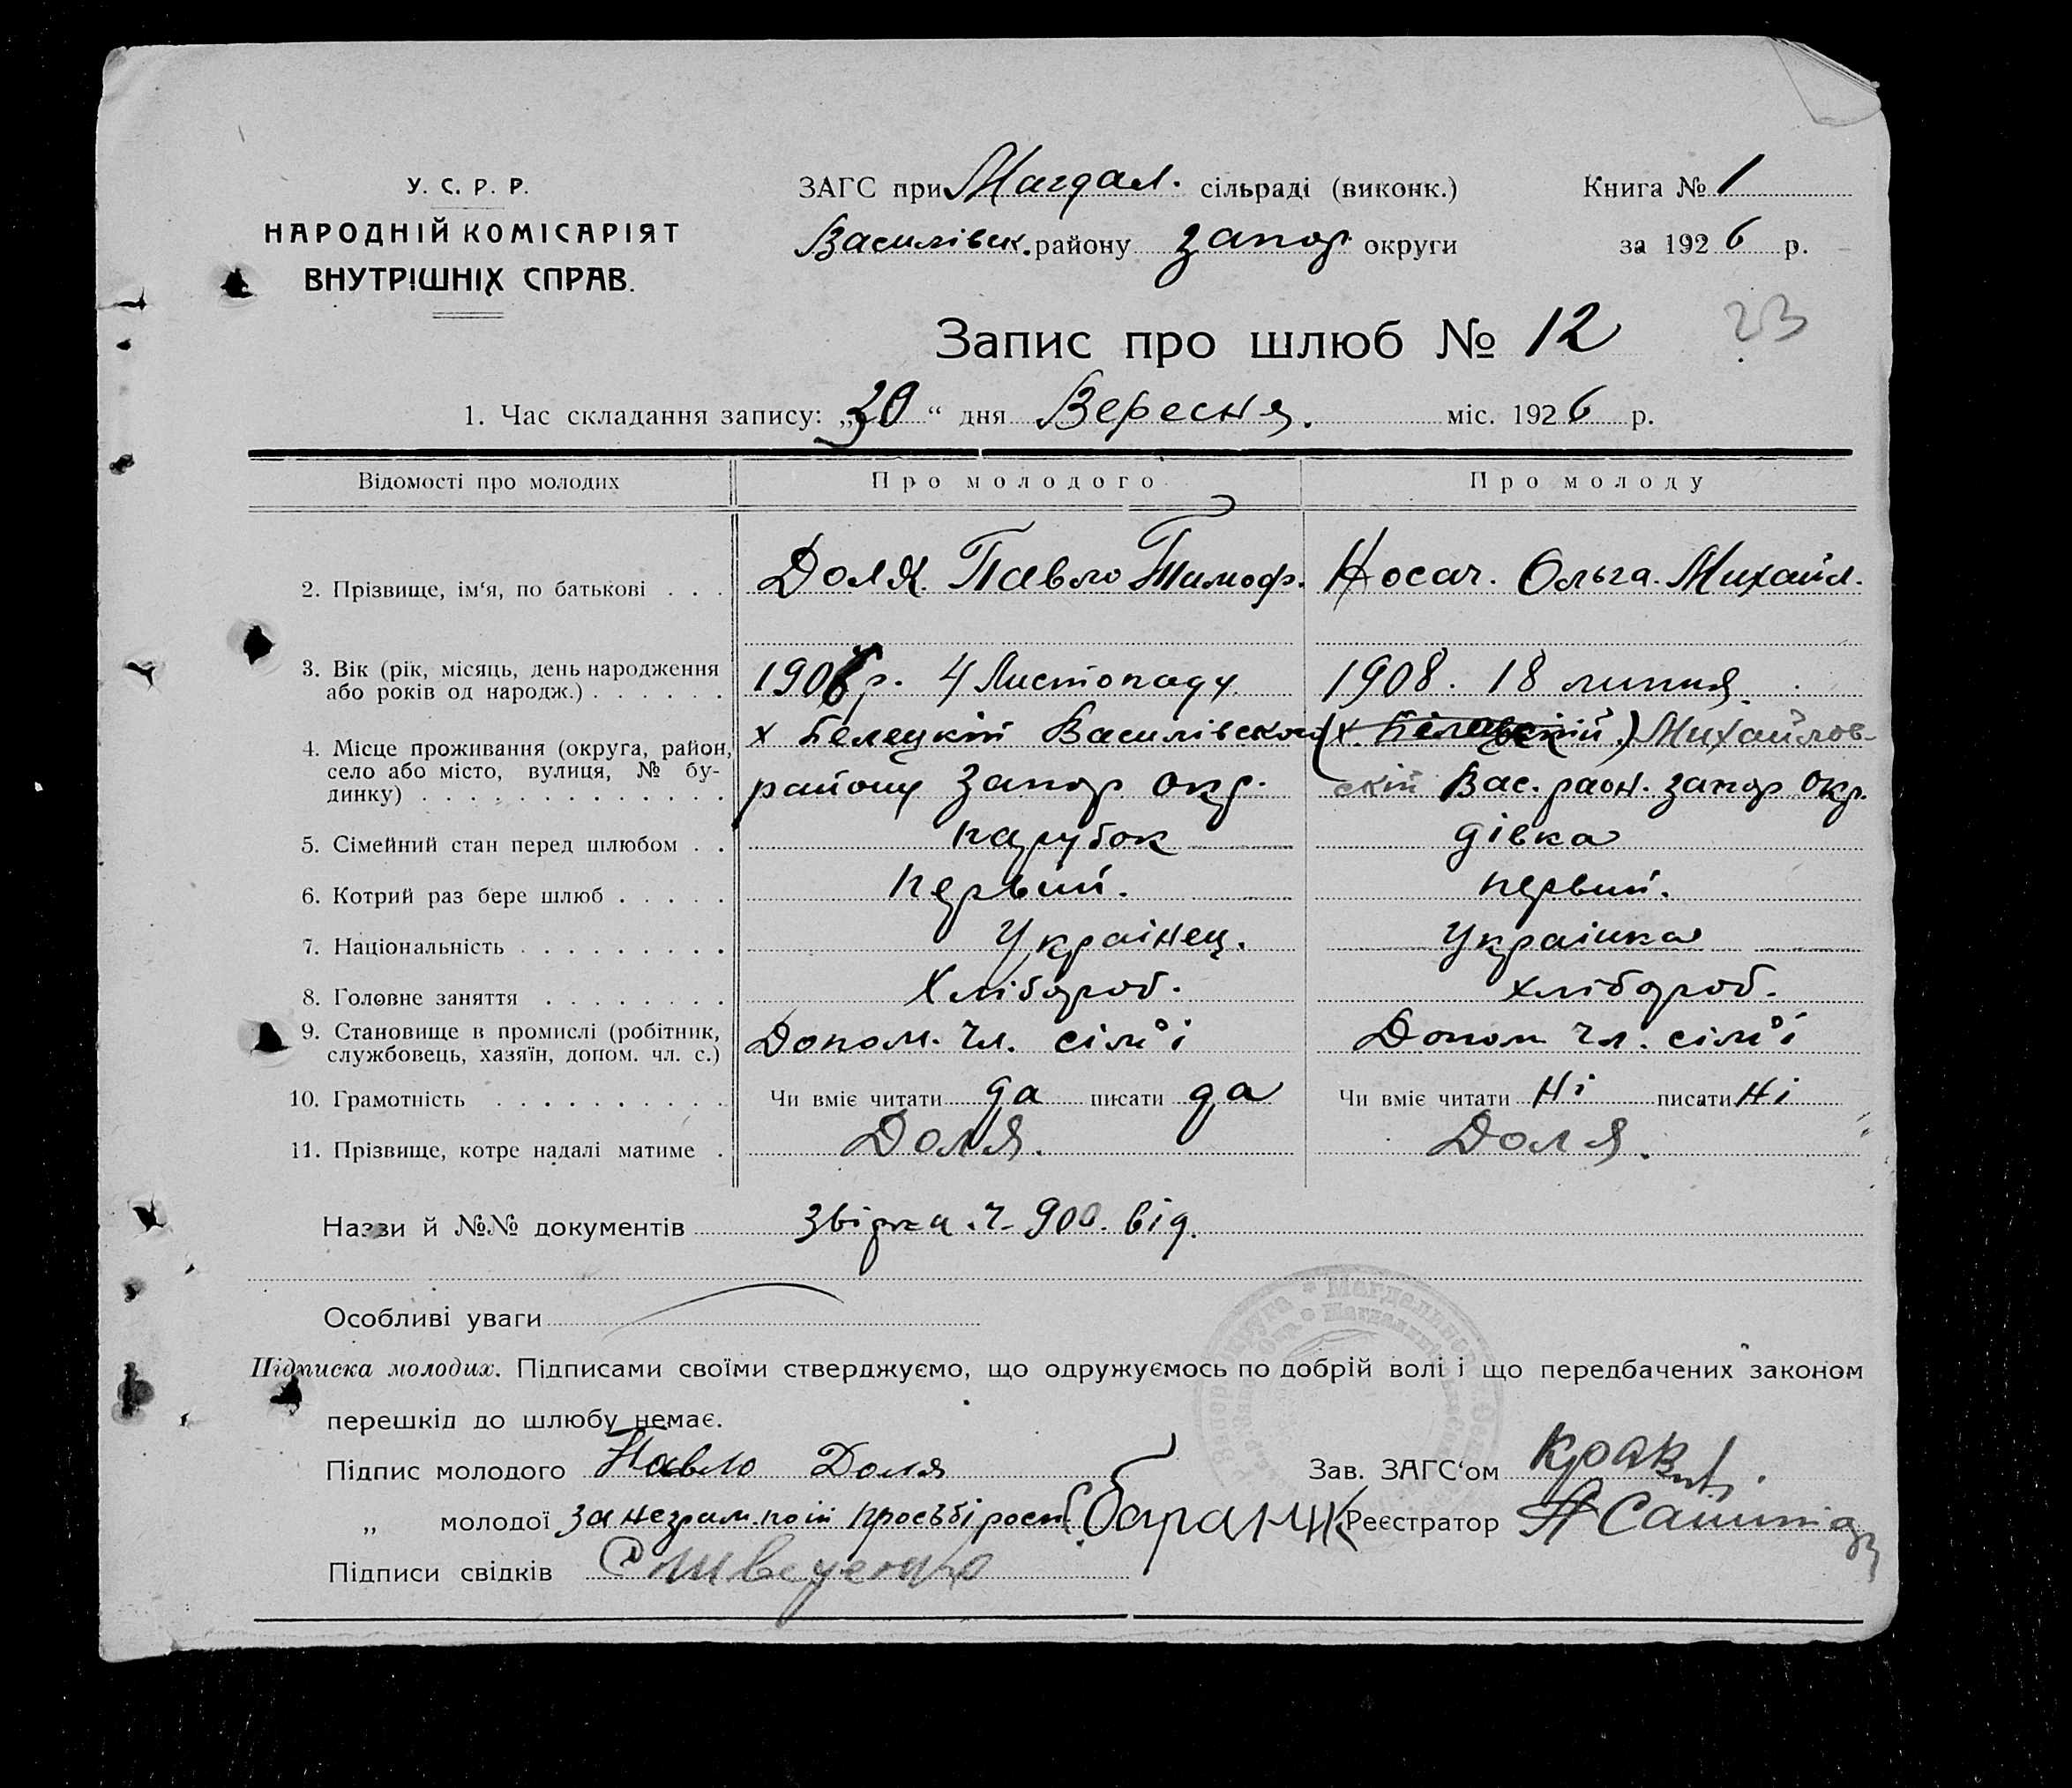 У. С. Р. Р.
НАРОДНІЙ КОМІСАРІЯТ
ВНУТРІШНІХ СПРАВ.
ЗАГС при Магдал. сільраді (виконк.)
Василівск. району запор округи
Книга № 1
за 1926 р.
Запис про шлюб № 12
23
1. Час складання запису: „30“ дня Вересня. міс. 1926 р.
Відомості про молодих Про молодого Про молоду
2. Прізвище, ім‘я, по батькові . . . Доля. Павло Тимоф. Носач. Ольга. Михайл.
3. Вік (рік, місяць, день народження
або років од народж.) . . . . . . 1906 р. 4 Листопаду 1908. 18 липня.
4. Місце проживання (округа, район,
село або місто, вулиця, № бу-
динку) . . . . . . . . . . . . .
х Белецкій Василівского
району Запор окр.
Михайлов-
скій Вас. раон. запор окр.
5. Сімейний стан перед шлюбом . . парубок дівка
6. Котрий раз бере шлюб . . . . . первий. первий.
7. Національність . . . . . . . . . Украінец. Украінка
8. Головне заняття . . . . . . . . Хлібороб. хлібороб.
9. Становище в промислі (робітник,
службовець, хазяїн, допом. чл. с.) Допом. чл. сімʼі Допом чл. сімʼі
10. Грамотність . . . . . . . . . . Чи вміє читати да писати да Чи вміє читати Ні писати Ні
11. Прізвище, котре надалі матиме . Доля. Доля.
Назви й №№ документів Звірка ч. 900. від.
Особливі уваги
Підписка молодих. Підписами своїми стверджуємо, що одружуємось по добрій волі і що передбачених законом
перешкід до шлюбу немає.
Підпис молодого Павло Доля
Зав. ЗАГС‘ом
„ молодої за неграм. поій просьбі росп.
Реєстратор
Підписи свідків